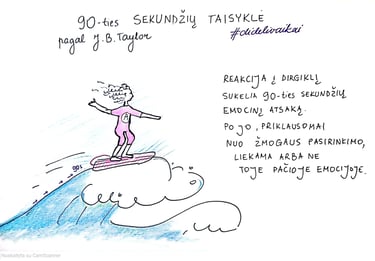 90-ties SEKUNDŽIŲ TAISYKLĖ
pagal J.B.Taylor
#didelivaikai
REAKCIJA Į DIRGIKLĮ
SUKELIA 90-TIES SEKUNDŽIŲ
EMOCINĮ ATSAKĄ.
PO JO, PRIKLAUSOMAI
NUO ŽMOGAUS PASIRINKIMO,
LIEKAMA ARBA NE
TOJE PAČIOJE EMOCIJOJE.
90s
Nuskaityta su CamScanner